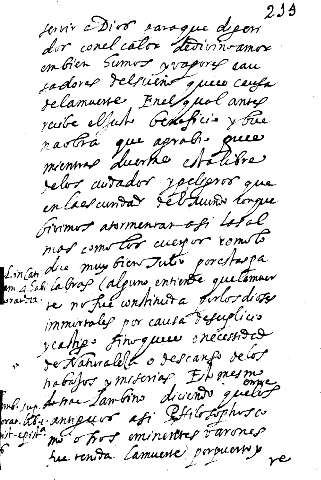 239
servir a Dios para que digeri
dos con el calor de divino amor
embien humos y vapores cau
sadores del sueño que es causa
de la muerte En el qual antes
recibe el Justo beneficio y bue
na obra que agrabio
mientras duerme esta libre
de los cuidados y peligros que
en la escuridad del mundo en que
bivimos atormentan asi las al
mas como los cuerpos como lo
dice muy bien Tulio por estas pa
labras (alguno entiende que la muer
te no fue constituida por los dioses
immortales por causa de suplicio
y castigo sino que es o necessidad
de Naturaleza o descanso de los
trabajos y miserias Esto mesmo
Lambino diciendo que los
antiguos asi Philosophos co
mo otros eminentes varones
fue tenida la muerte por puerto y
re